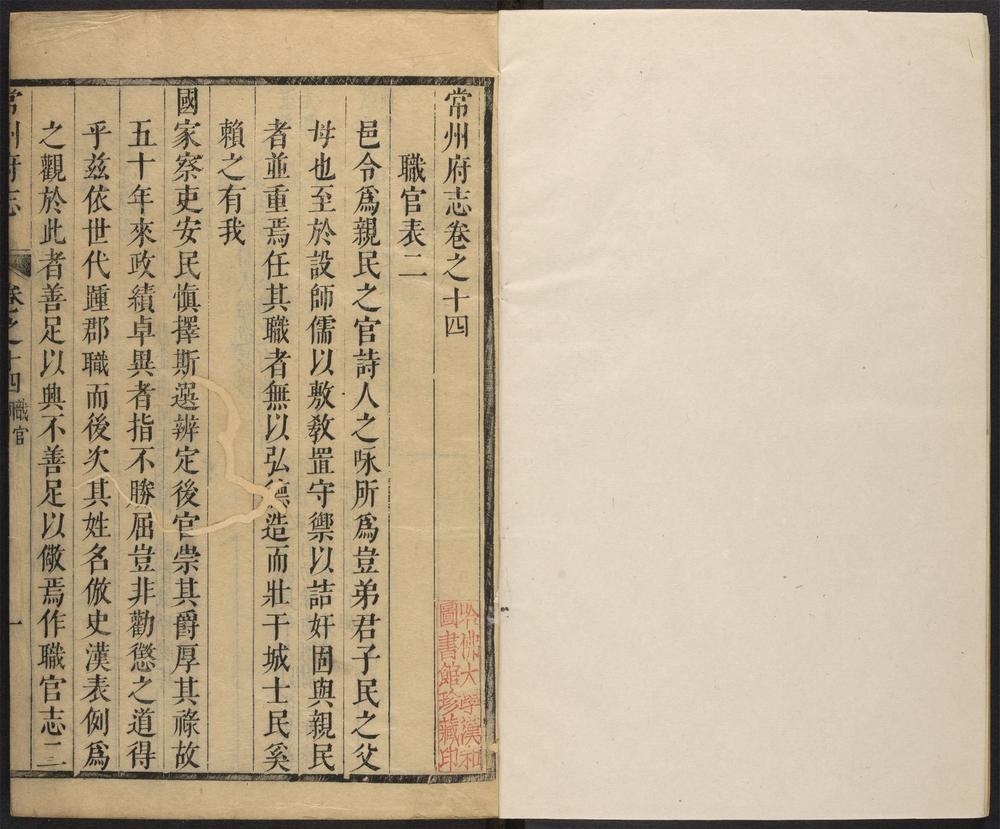 常州府志卷之十四
職官表二
邑令爲親民之官詩人之咏所爲豈弟君子民之父
母也至於設師儒以敷敎置守禦以詰奸固與親民
者並重焉任其職者無以弘德造而壯干城士民奚
賴之有我
國家察吏安民愼擇斯選辨定後官崇其爵厚其祿故
五十年來政績卓異者指不勝屈豈非勸懲之道得
乎兹依世代踵郡職而後次其姓名倣史漢表例爲
之觀於此者善足以興不善足以儆焉作職官志二
常州府志
卷之十四
職官
一
哈佛大學漢和
圖書館珍藏印